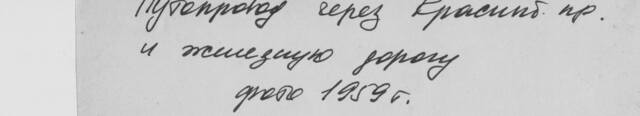 Путепровод через Красный пр.
и железную дорогу
фото 1959 г.